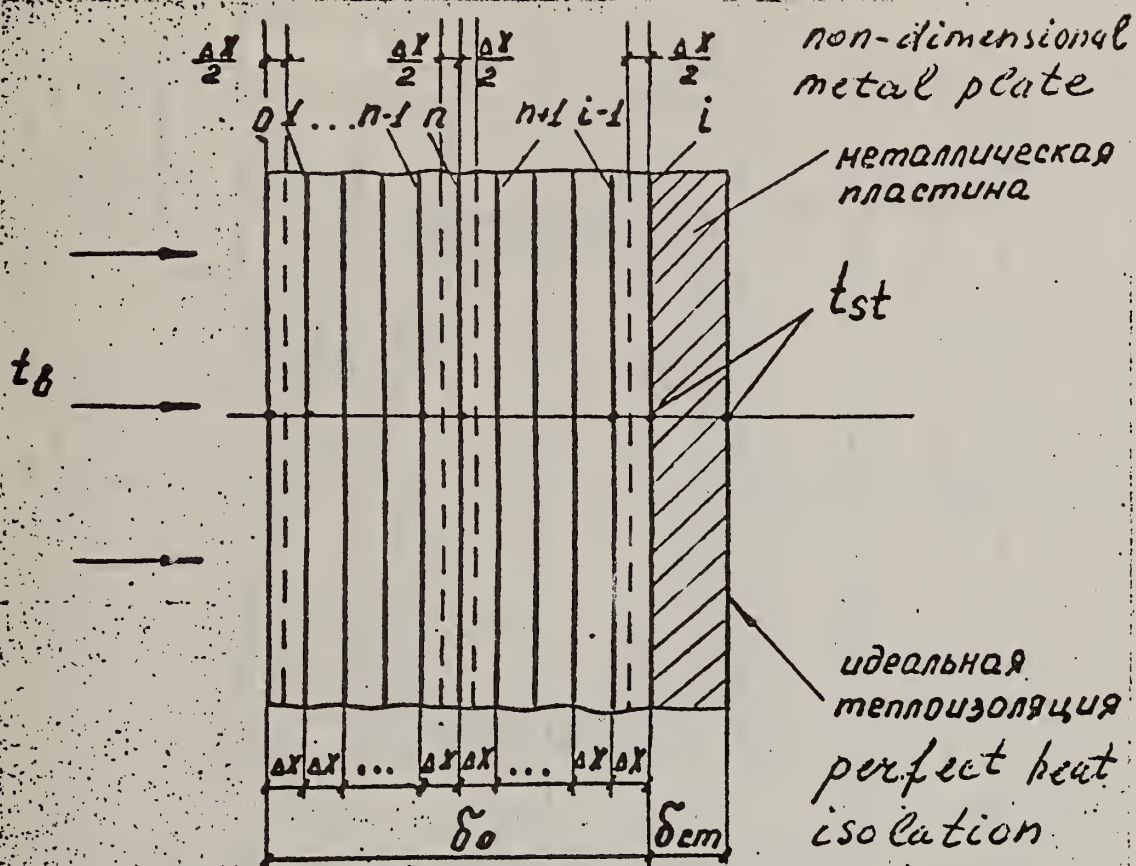 ΔX/2 ΔX/2 ΔX/2 ΔX/2
non-dimensional
metal plate
0 1 ... n-1 n n+1 i-1 i
металлическая
пластина
tst
tв
идеальная
теплоизоляция
perfect heat
isolation
ΔX ΔX ... ΔX ΔX ... ΔX ΔX
δо δст